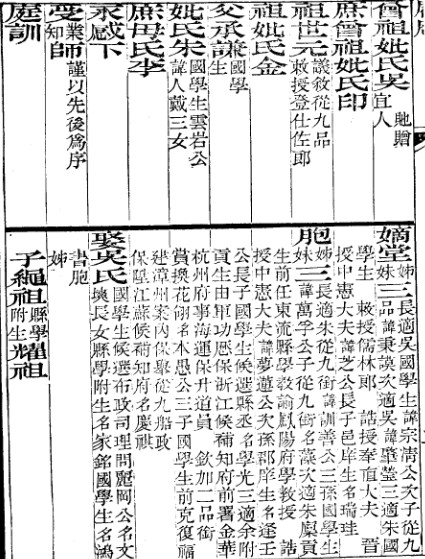 曾祖妣氏吳 貤贈宜人
庶曾祖妣氏印
祖世元 議敘從九品敕授登仕佐郎
祖妣氏金
父承謙 國學生
妣氏朱 國學生雲岩公諱人戴三女
庶母氏李
永感下
受業知師 謹以先後為序
庭訓
嫡堂姊妹三 長適吳國學生諱宗清公次子從九品諱秉謨次適吳諱肇瑩三適朱國
學生 敕授儒林郎 誥授奉直大夫 晉
授中憲大夫諱芝公長子邑庠生名瑞珪
胞姊妹三 長適朱從九銜諱訓善公三孫國學生諱萬孚公子從九銜名藻次適朱廩貢
生前任東流縣學教諭鳳陽府學教授 誥
授中憲大夫諱夢蓮公次孫郡庠生名逢壬
公長子國學生候選縣丞名學光三適余附
貢生由軍功歷保浙江候補知府前署金華
杭州府事海運保升道員 欽加二品銜
賞換花翎名本愚公三子國學生前克復福
建漳州案內保舉從九船政
保陞江蘇候補知府名慶祺
娶吳氏 國學生候選布政司理問麗岡公名文
長女縣學附生名家銘國學生名鴻
書胞
姊
子繩祖 縣學附生 耀祖